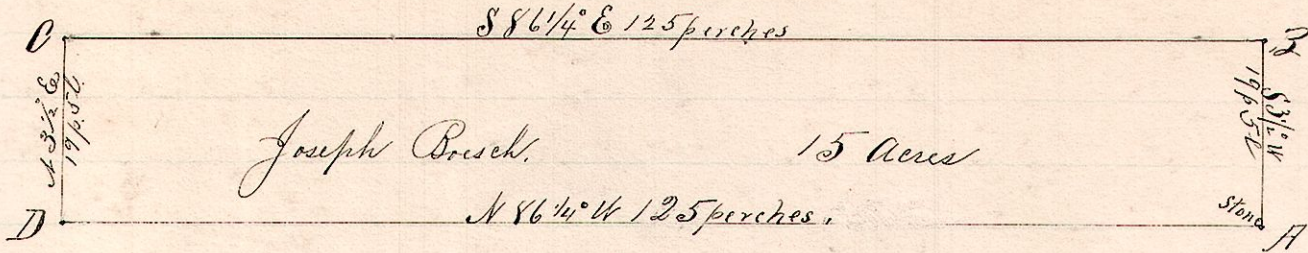 S 86 1/4° E 125 perches
C
B
N 3 1/2° E
19 p. 5 l.
S 3 1/2° W
19 p 5 l
Joseph Boesch.
15 Acres
N 86 1/4° W 125 perches.
Stone
D
A